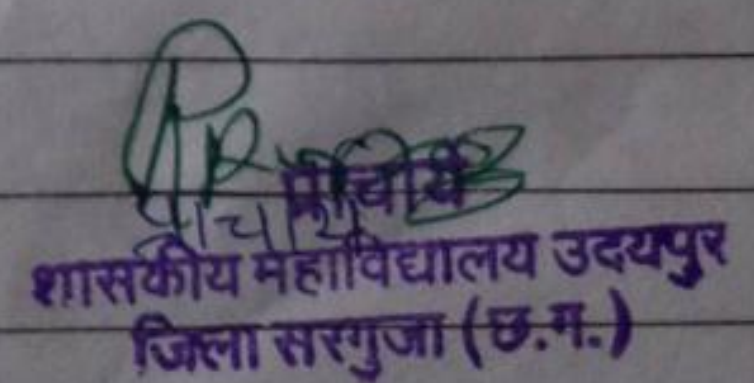 प्राचार्य
प्राचार्य
शासकीय महाविद्यालय उदयपुर
जिला सरगुजा (छ.ग.)